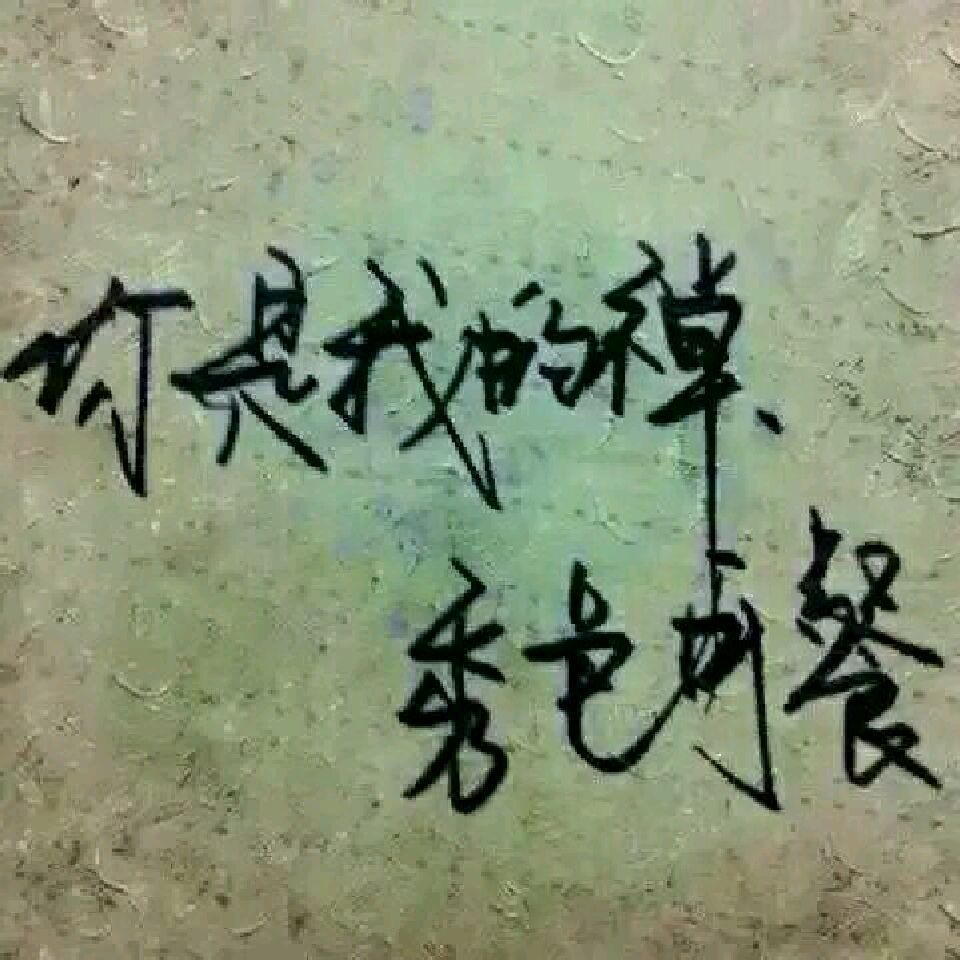 你是我的禅、
秀色可餐